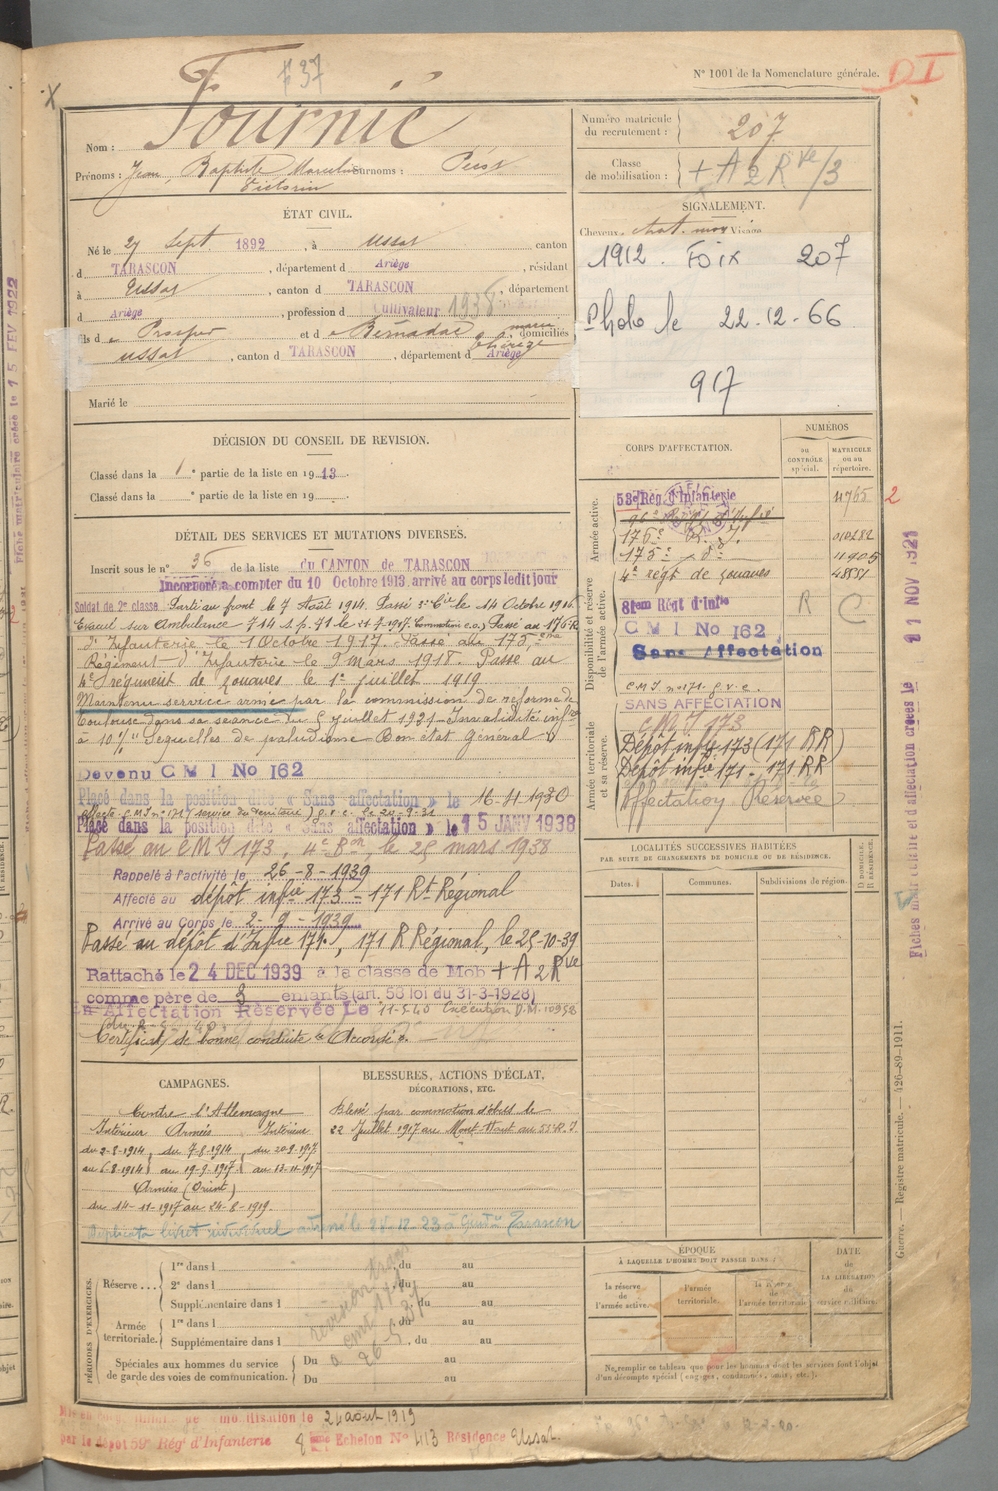 N° 1001 de la Nomenclature générale.
DI
737
X
Nom : Fournié
Prénoms : Jean, Baptiste Marcelin surnoms :
Victorin
Numéro matricule
du recrutement : 207
Classe
de mobilisation : + A 2 Rve/3
ÉTAT CIVIL.
Né le 27 Sept. 1892, à Ussat canton
d TARASCON, département d Ariège, résidant
à Ussat, canton d TARASCON, département
d Ariège, profession d Cultivateur 1938
fils de Prosper et de Bernadac marie domiciliés
Ussat, canton d TARASCON, département d Ariège
Marié le
SIGNALEMENT.
Cheveux Visage
1912. FOIX 207
Photo le 22-12-66
917
DÉCISION DU CONSEIL DE REVISION.
Classé dans la 1e partie de la liste en 1913.
Classé dans la e partie de la liste en 19
DÉTAIL DES SERVICES ET MUTATIONS DIVERSES.
Inscrit sous le n° 36 de la liste du CANTON de TARASCON
Incorporé à compter du 10 Octobre 1913. arrivé au corps ledit jour
Soldat de 2e classe. Parti au front le 7 Août 1914. Passé le 14 Octobre 1916.
Evacué sur Ambulance 7/14 s.p. 71 le 21-7-1917. Passé au 176 R.
d'Infanterie le 1 Octobre 1917. Passé au 175 ème
Régiment d'Infanterie le 9 Mars 1918. Passé au
4e régiment de zouaves le 1er juillet 1919
Maintenu service armé par la commission de réforme de
Toulouse dans sa séance du juillet 1921. Invalidité infre
à 10% "Séquelles de paludisme Bon état général"
Devenu CMI No 162
Placé dans la position dite « Sans affectation » le 16-11-1930
Affecté C.M.I. n° 171 (service du territoire) p.v.c. le 20-9-31
Placé dans la position dite « Sans affectation » le 15 JANV 1938
Passé au CMI 173, 4e Bon, le 25 mars 1938
Rappelé à l'activité le 26-8-1939
Affecté au dépôt infie 173 - 171 Rt Régional
Arrivé au Corps le 2-9-1939
Passé au dépôt d'Infie 171, 171 R Régional, le 25-10-39
Rattaché le 24 DEC 1939 à la classe de Mob + A 2 Rve
comme père de 3 enfants (art. 58 loi du 31-3-1928)
En Affectation Réservée Le 11-5-40 Exécution D.M. 10958
Certificat de bonne conduite "Accordé".
CORPS D'AFFECTATION.
NUMÉROS
au CONTRÔLE spécial.
MATRICULE ou au répertoire.
Armée active.
53e Rég. d'Infanterie 4765 2
96e Régt d'Infie
176e R. I. 010282
175e d° 11905
4e régt de zouaves 48551
Disponibilité et réserve de l'armée active.
81em Régt d'Infie R C
CMI No 162
Sans Affectation
C.M.I. n° 171. p.v.c.
SANS AFFECTATION
Armée territoriale et sa réserve.
CMI 173
Dépôt infie 173 (171 RR)
Dépôt infie 171 - 171 RR
Affectation Réservée
LOCALITÉS SUCCESSIVES HABITÉES
PAR SUITE DE CHANGEMENTS DE DOMICILE OU DE RÉSIDENCE.
Dates. Communes. Subdivisions de région. D DOMICILE. R RÉSIDENCE.
CAMPAGNES.
Contre l'Allemagne
Intérieur Armées Intérieur
du 2-8-1914 du 7-8-1914 du 20-9-1917
au 6-8-1914 au 19-9-1917 au 13-11-1917
Armées (Orient)
du 14-11-1917 au 24-8-1919.
BLESSURES, ACTIONS D'ÉCLAT,
DÉCORATIONS, ETC.
Blessé par commotion d'obus le
22 Juillet 1917 au Mont Haut au 53e R. I.
Duplicata livret individuel adressé le 28-12-23 à Gendie Tarascon
PÉRIODES D'EXERCICES.
Réserve...
1re dans l du au
2e dans l du au
Supplémentaire dans l du au
Armée territoriale.
1re dans l du au
Supplémentaire dans l , du au
Spéciales aux hommes du service
de garde des voies de communication.
Du au
Du au
ÉPOQUE
À LAQUELLE L'HOMME DOIT PASSER DANS :
la réserve de l'armée active.
l'armée territoriale.
la réserve de l'armée territoriale
DATE
DE
LA LIBÉRATION
du
service militaire.
Ne remplir ce tableau que pour les hommes dont les services font l'objet
d'un décompte spécial (engagés, condamnés, omis, etc.).
Mis en congé illimité de démobilisation le 24 août 1919
par le dépôt 59e Régt d'Infanterie 8 ème Echelon N° 413 Résidence Ussat.
Fiche matriculaire créée le 15 FEV 1922
Fiches matriculaire et d'affectation créées le 21 NOV 1921
Guerre. — Registre matricule. — 426-89-1911.